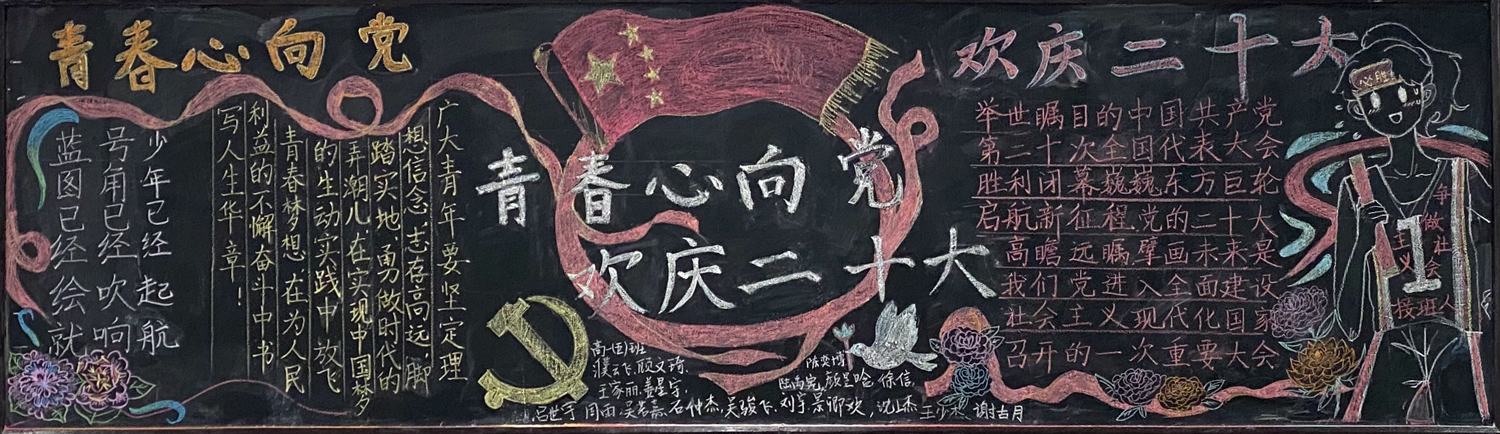 青春心向党
少年已经起航
号角已经吹响
蓝图已经绘就
广大青年要坚定理
想信念,志存高远,脚
踏实地,勇做时代的
弄潮儿,在实现中国梦
的生动实践中放飞
青春梦想,在为人民
利益的不懈奋斗中书
写人生华章!
青春心向党
欢庆二十大
欢庆二十大
举世瞩目的中国共产党
第二十次全国代表大会
胜利闭幕巍巍东方巨轮
启航新征程党的二十大
高瞻远瞩擘画未来是
我们党进入全面建设
社会主义现代化国家
召开的一次重要大会
必胜
争做社会
主义
接班人
1
濮云飞,顾文琦,
王家丽,姜星宇,
陈奕博
徐信,
吕世宇 周雨 石仲杰,吴骏飞,刘宇,景卿欢,
王少杰 谢古月